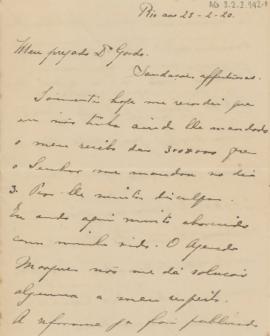 AG 3.2.2.142-1
Rio aos 23-2-20.
Meu prezado Dr Gordo.
Saudações affectuosas.
Somente hoje me recordei que
eu não tinha ainda lhe mandado
o meu recibo das 300$000 que
o Senhor me mandou no dia
3. Peço lhe muitas disculpas.
Eu ando aqui muito aborrecido
com minha vida. O Azevedo
Marques não me dá solução
alguma a meu respeito.
A reforma ja foi publicada